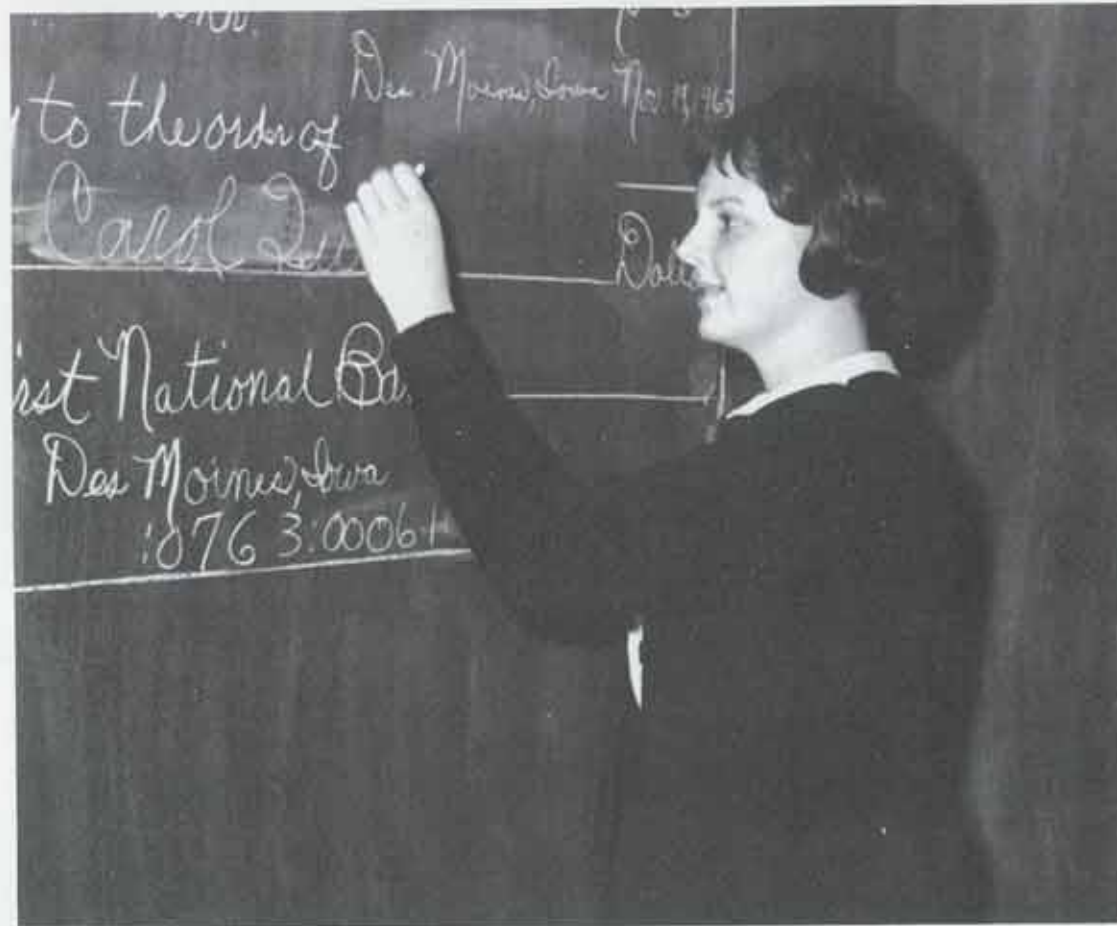 Des Moines, Iowa Nov. 19, 1963
to the order of
Carol
Doll
irst National Ba
Des Moines, Iowa
:0763:0006